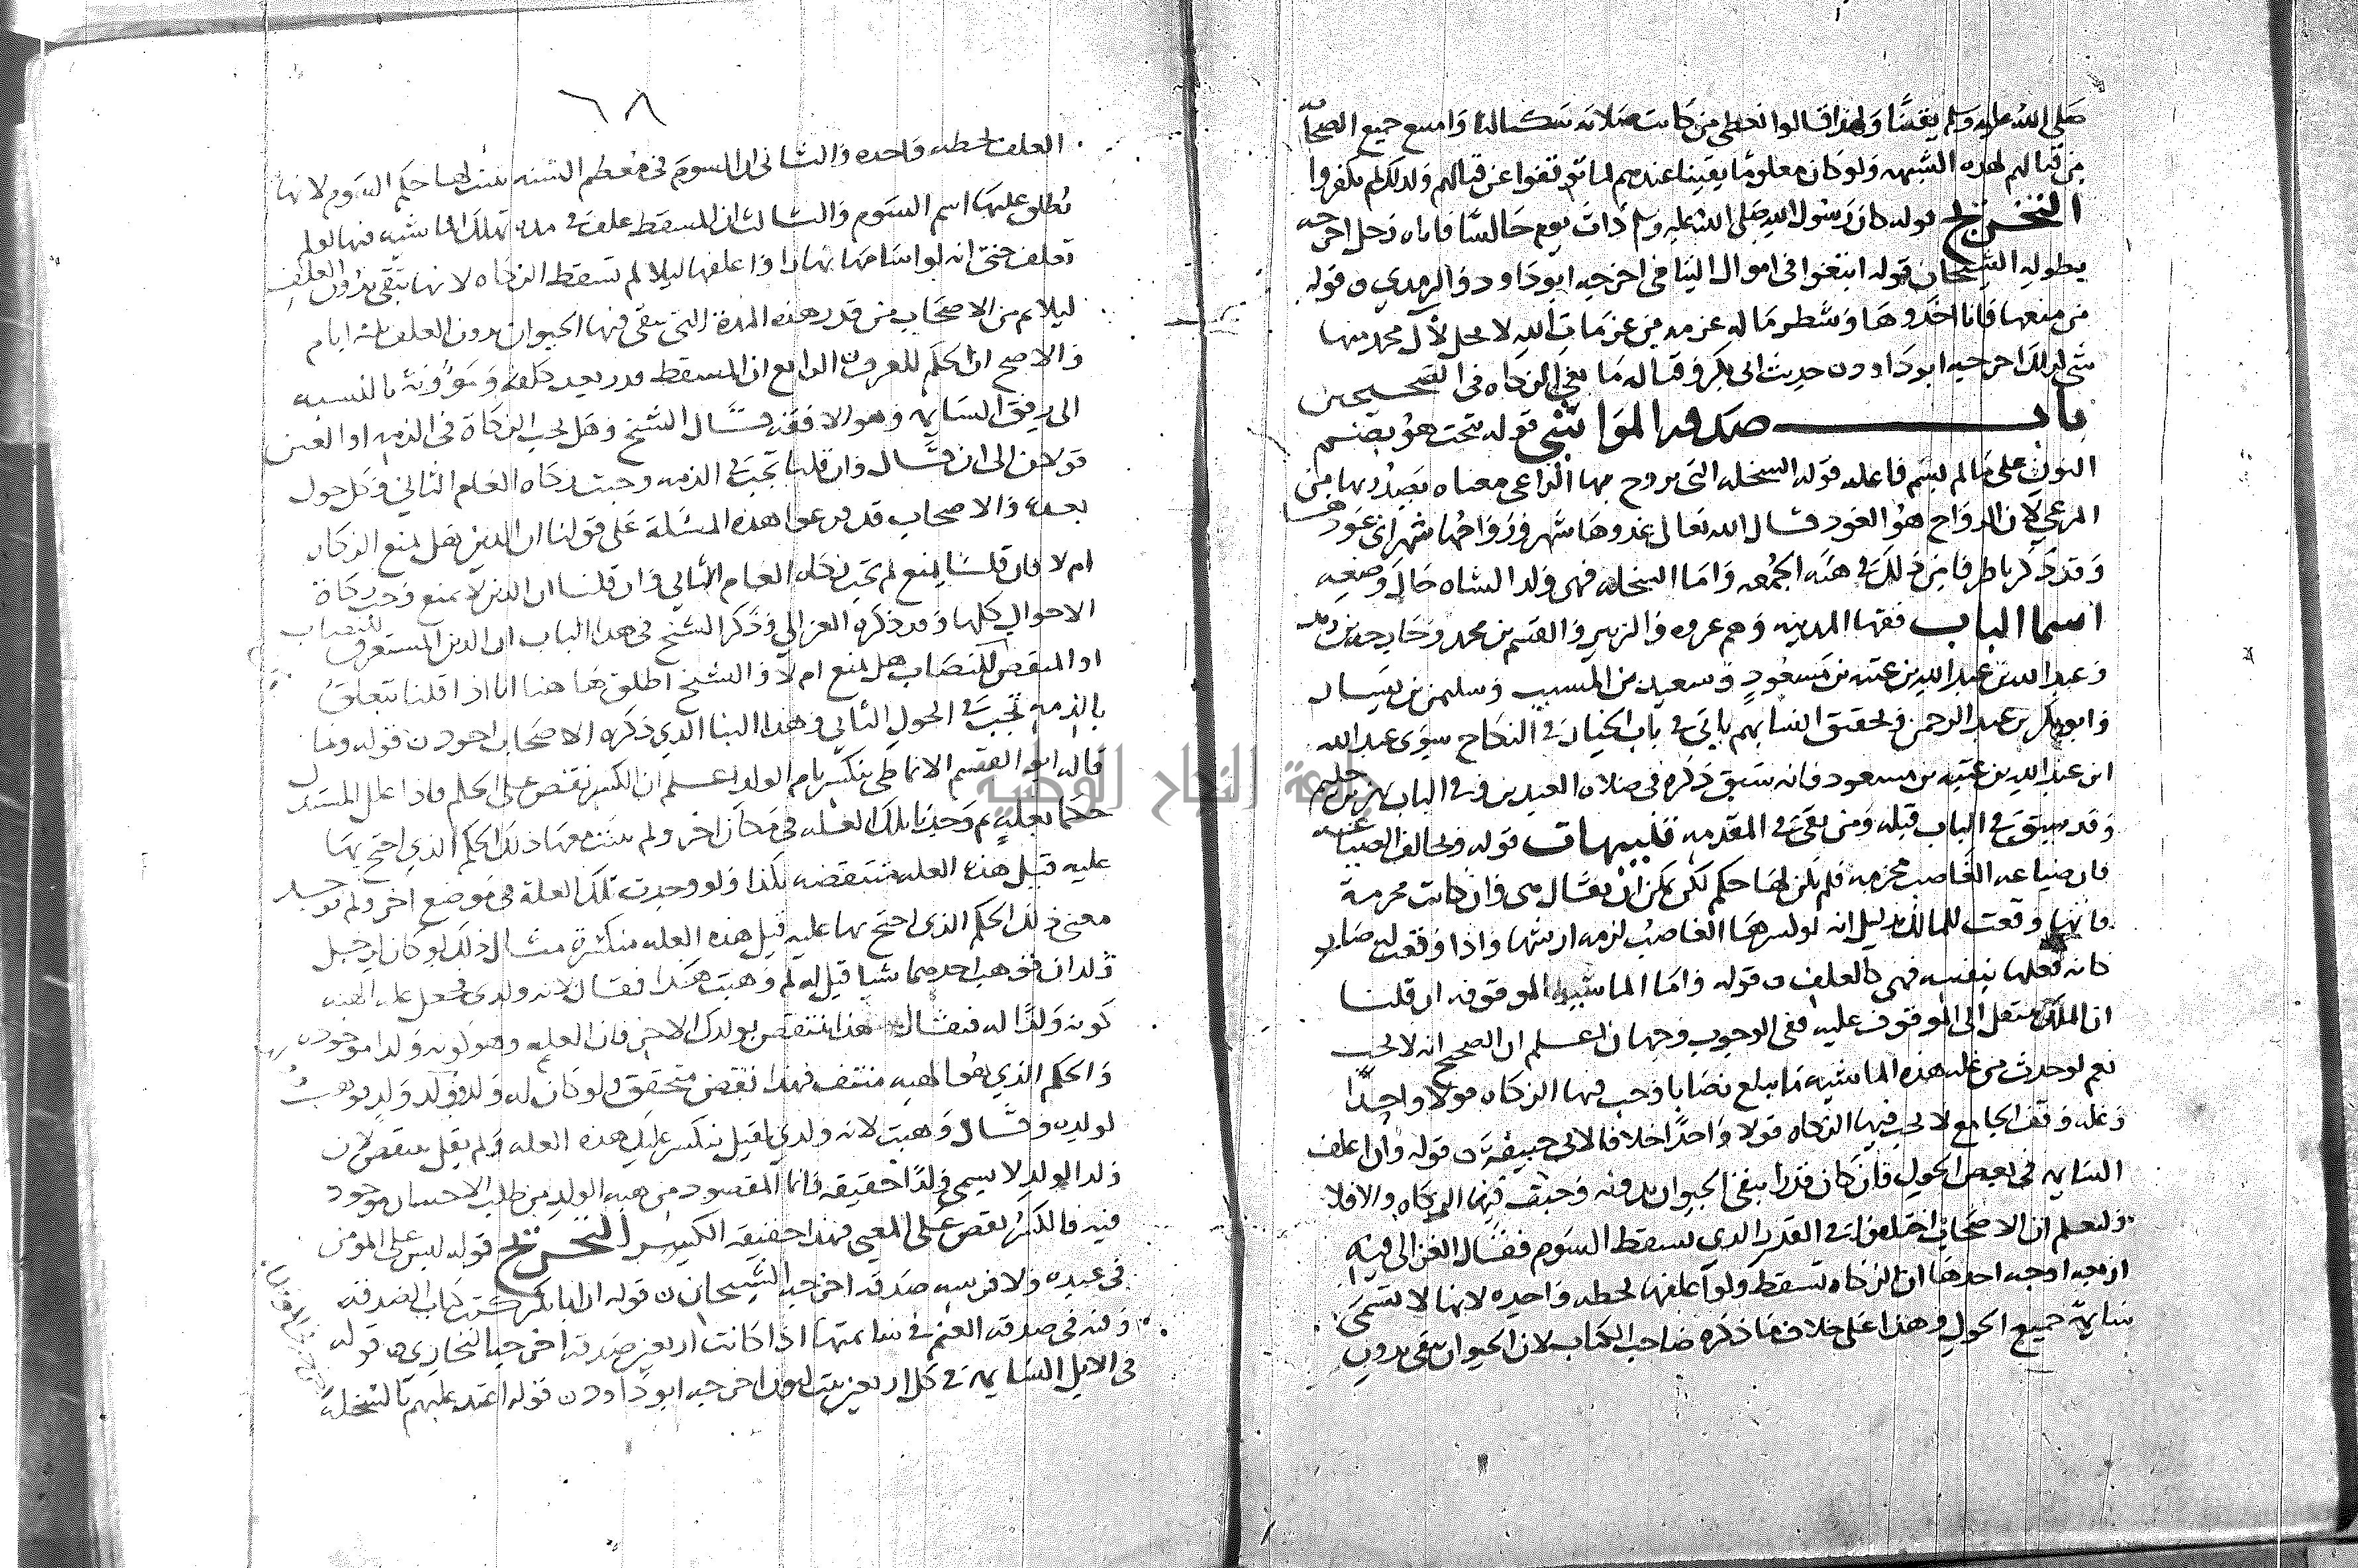 صلى الله عليه وسلم يقينا ولهذا قالوا نعطي من كانت صلاته سكنا لنا وامتنع جميع الصحابة
من قتالهم لهذه الشبهه ولو كان معلوما يقينا عندهم لما توقفوا عن قتالهم ولذلك لم يكفروا
التخريج قوله كان رسول الله صلى الله عليه وسلم ذات يوم جالسا فاتاه رجل اخرجه
بطوله الشيخان قوله ابتغوا في اموال اليتامى اخرجه ابو داود والترمذي ٥ قوله
من منعها فانا اخذوها وشطر ماله عزمه من عزمات الله لا يحل لآل محمد منها
شي لذلك اخرجه ابو داود ٥ حديث ابي بكر وقتاله مانعي الزكاه في الصحيحين
باب صدقه المواشي قوله نتجت هو بضم
النون على ما لم يسم فاعله قوله السخله التي يروح بها الراعي معناه يصدر بها من
المرعى لان الرواح هو العود قال الله تعالى غدوها شهر ورواحها شهر اي عودها
وقد ذكرنا طرفا من ذلك في هيئه الجمعه واما السخله فهي ولد الشاه حال وضعه
اسما الباب فقها المدينه وهم عروه والزبير والقسم بن محمد وخارجه بن زيد
وعبد الله بن عبد الله بن عتبه بن مسعود وسعيد بن المسيب وسليمن بن يسار
وابو بكر بن عبد الرحمن وتحقيق انسابهم ياتي في باب الخيار في النكاح سوى عبد الله
ابن عبد الله بن عتبه بن مسعود فانه سبق ذكره في صلاه العيدين وفي الباب بهز بن حكيم
وقد سبق في الباب قبله ومن بقي في المقدمه تنبيهات قوله وتخالف
فان صياغه الغاصب محرمه فلم يكن لها حكم لكن يمكن ان يقال هي وان كانت محرمة
فانها وقعت للمالك بدليل انه لو كسرها الغاصب لزمه ارشها واذا وقعت له صار
كانه فعلها بنفسه فهي كالعلف ٥ قوله واما الماشيه الموقوفه ان قلنا
ان الملك منتقل الى الموقوف عليه ففي الوجوب وجهان اعلم ان الصحيح انه لا يجب
نعم لو حدث من غله هذه الماشيه ما يبلغ نصابا وجب فيها الزكاه قولا واحدا
وغله وقف الجامع لا يجب فيها الزكاه قولا واحدا خلافا لابي حنيفة ٥ قوله وان اعلف
السايمه في بعض الحول فان كان قدرا يبقى الحيوان بدونه وجبت فيها الزكاه والا فلا
ولتعلم ان الاصحاب اختلفوا في القدر الذي يسقط السوم فقال الغزالي فيه
اربعه اوجه احدها ان الزكاه تسقط ولو اعلفها لحظه واحده لانها لا تسمى
سايمة جميع الحول وهذا على خلاف ما ذكره صاحب الكتاب لان الحيوان يبقى بدون
٦٨
العلف لحظه واحده والثاني ان السوم في معظم السنه يثبت لها حكم السوم لانها
يطلق عليها اسم السوم والثالث ان المسقط علف في مده تهلك الماشيه فيها لو لم
تعلف حتى انه لو اسامها نهارا واعلفها ليلا لم تسقط الزكاه لانها تبقى بدون العلف
ليلا ثم من الاصحاب من قدر هذه المدة التي يبقى فيها الحيوان بدون العلف بثلثه ايام
والاصح ان الحكم للعرف ٥ الرابع ان المسقط قدر يعد كلفه ومؤونة بالنسبه
الى رفق السايمه وهو الافقه قال الشيخ وهل تجب الزكاة في الذمه او العين
قولان الى ان قال وان قلنا تجب في الذمه وجبت زكاه العام الثاني وكل حول
بعده والاصحاب قد فرعوا هذه المسئلة على قولنا ان الدين هل يمنع الزكاه
ام لا فان قلنا يمنع لم تجب زكاه العام الثاني وان قلنا ان الدين لا يمنع وجب زكاة
الاحوال كلها وقد ذكره الغزالي وذكر الشيخ في هذا الباب ان الدين المستغرق للنصاب
او المنقص للنصاب هل يمنع ام لا والشيخ اطلق ها هنا انا اذا قلنا يتعلق
بالذمه تجب في الحول الثاني وهذا البنا الذي ذكره الاصحاب اجود ٥ قوله وما
قاله ابو القسم الانماطي ينكسر بام الولد اعلم ان الكسر نقض على الحكم فاذا علل المستدل
حكما بعله ثم وجدنا تلك العله في مكان اخر ولم يثبت فيها ذلك الحكم الذي احتج بها
عليه قيل هذه العله منتقضه بكذا ولو وجدت تلك العلة في موضع اخر ولم يوجد
معنى ذلك الحكم الذي احتج بها عليه قيل هذه العله منكسرة مثال ذلك لو كان لرجل
ولدان فوهب احدهما شيا قيل له لم وهبت هذا فقال لانه ولدي فجعل عله الهبه
كونه ولدا له فيقال هذا ينتقض بولدك الاخر فان العله وهو كونه ولدا موجوده
والحكم الذي هو الهبه منتف فهذا نقض متحقق ولو كان له ولد وولد ولد فوهب
لولده وقال وهبت لانه ولدي لقيل ينكسر عليك هذه العله ولم يقل ينتقض لان
ولد الولد لا يسمى ولدا حقيقه فانما المقصود من هبه الولد من طلب الاحسان موجود
فيه فالكسر نقض على المعنى فهذا حقيقه الكسر التخريج قوله ليس على المومن
في عبده ولا فرسه صدقه اخرجه الشيخان ٥ قوله ان ابا بكر كتب كتاب الصدقه
وفيه في صدقه الغنم في سايمتها اذا كانت اربعين صدقه اخرجه البخاري ٥ قوله
في الابل السايمه في كل اربعين بنت لبون اخرجه ابو داود ٥ قوله اعتد عليهم بالسخلة